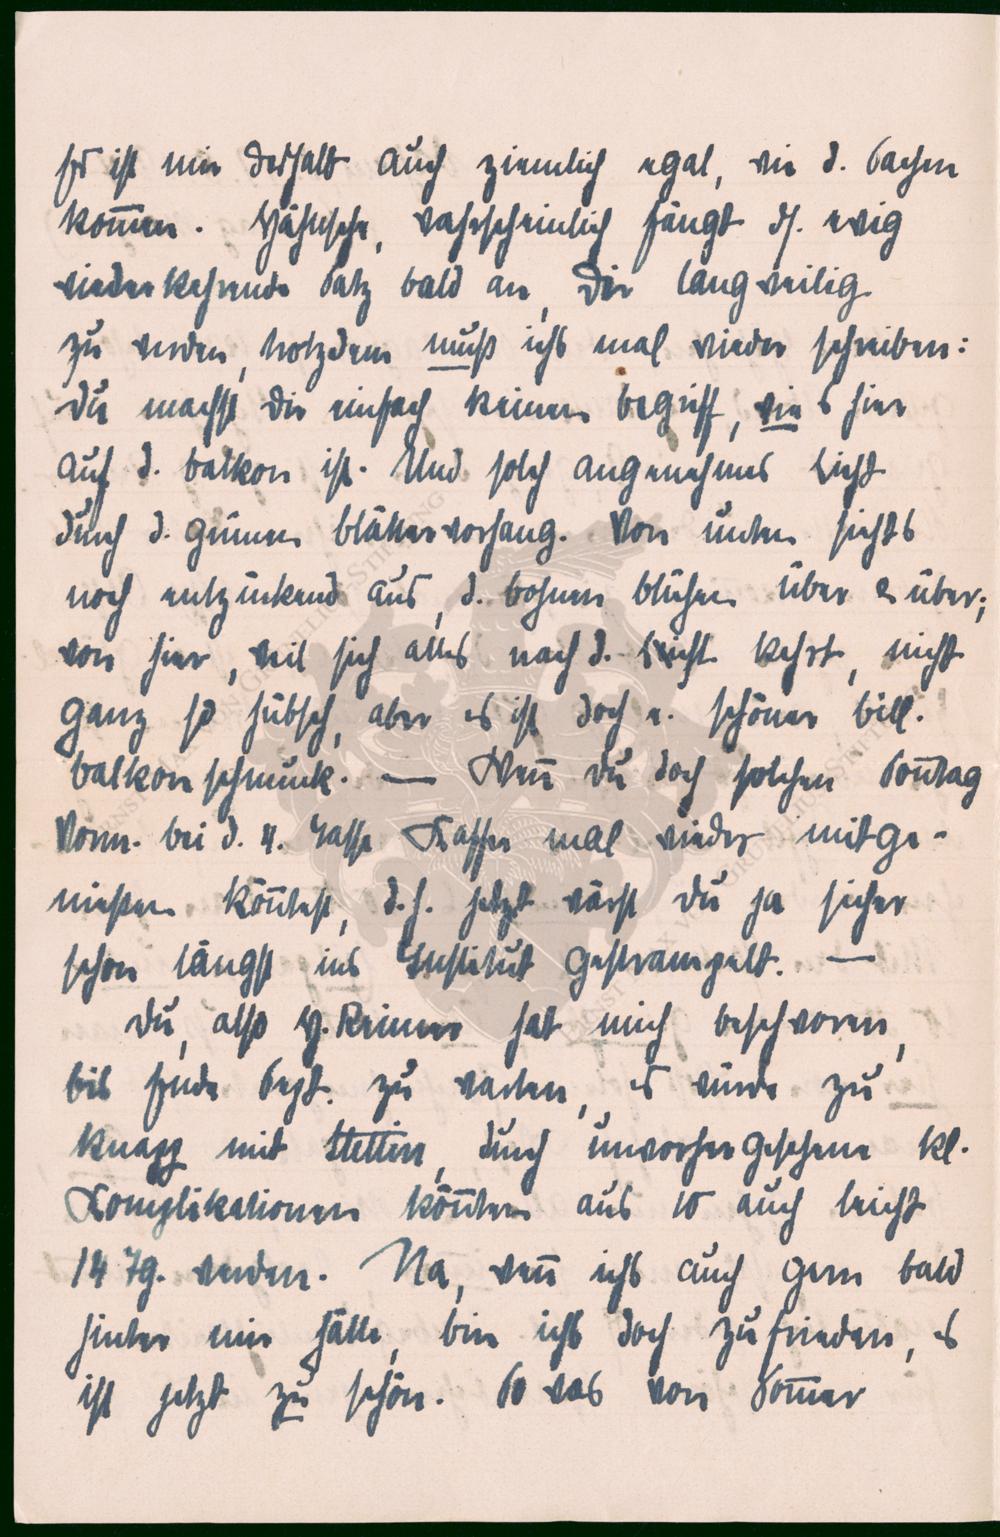 Es ist mir deshalb auch ziemlich egal, wie d. Sachen
kom̅en. Hähnsche, wahrscheinlich fängt ds. ewig
wiederkehrende Satz bald an, Dir langweilig
zu werden, trotzdem muß ichs mal wieder schreiben:
Du machst Dir einfach keinen begriff, wie s hier
auf d. balkon ist. Und solch angenehmes Licht
durch d. grünen blättervorhang. Von unten siehts
noch entzückend aus, d. bohnen blühen über & über;
von hier, weil sich alles nach d. Licht kehrt, nicht
ganz so hübsch, aber es ist doch e. schöner bill.
balkonschmuck. — Wen̅ du doch solchen Son̅tag
Vorm. bei d. 4. Tasse Kaffee mal wieder mitge-
niessen kön̅test, d.h. jetzt wärst du ja sicher
schon längst ins Institut gestrampelt. —
Du, also H. Reimer hat mich beschworen,
bis Ende Sept. zu warten, es würde zu
knapp mit Stettin, durch unvorhergesehene kl.
Komplikationen kön̅ten aus 10 auch leicht
14 Tg. werden. Na, wen̅ ichs auch gern bald
hinter mir hätte, bin ichs doch zufrieden, es
ist jetzt zu schön. So was von Som̅er